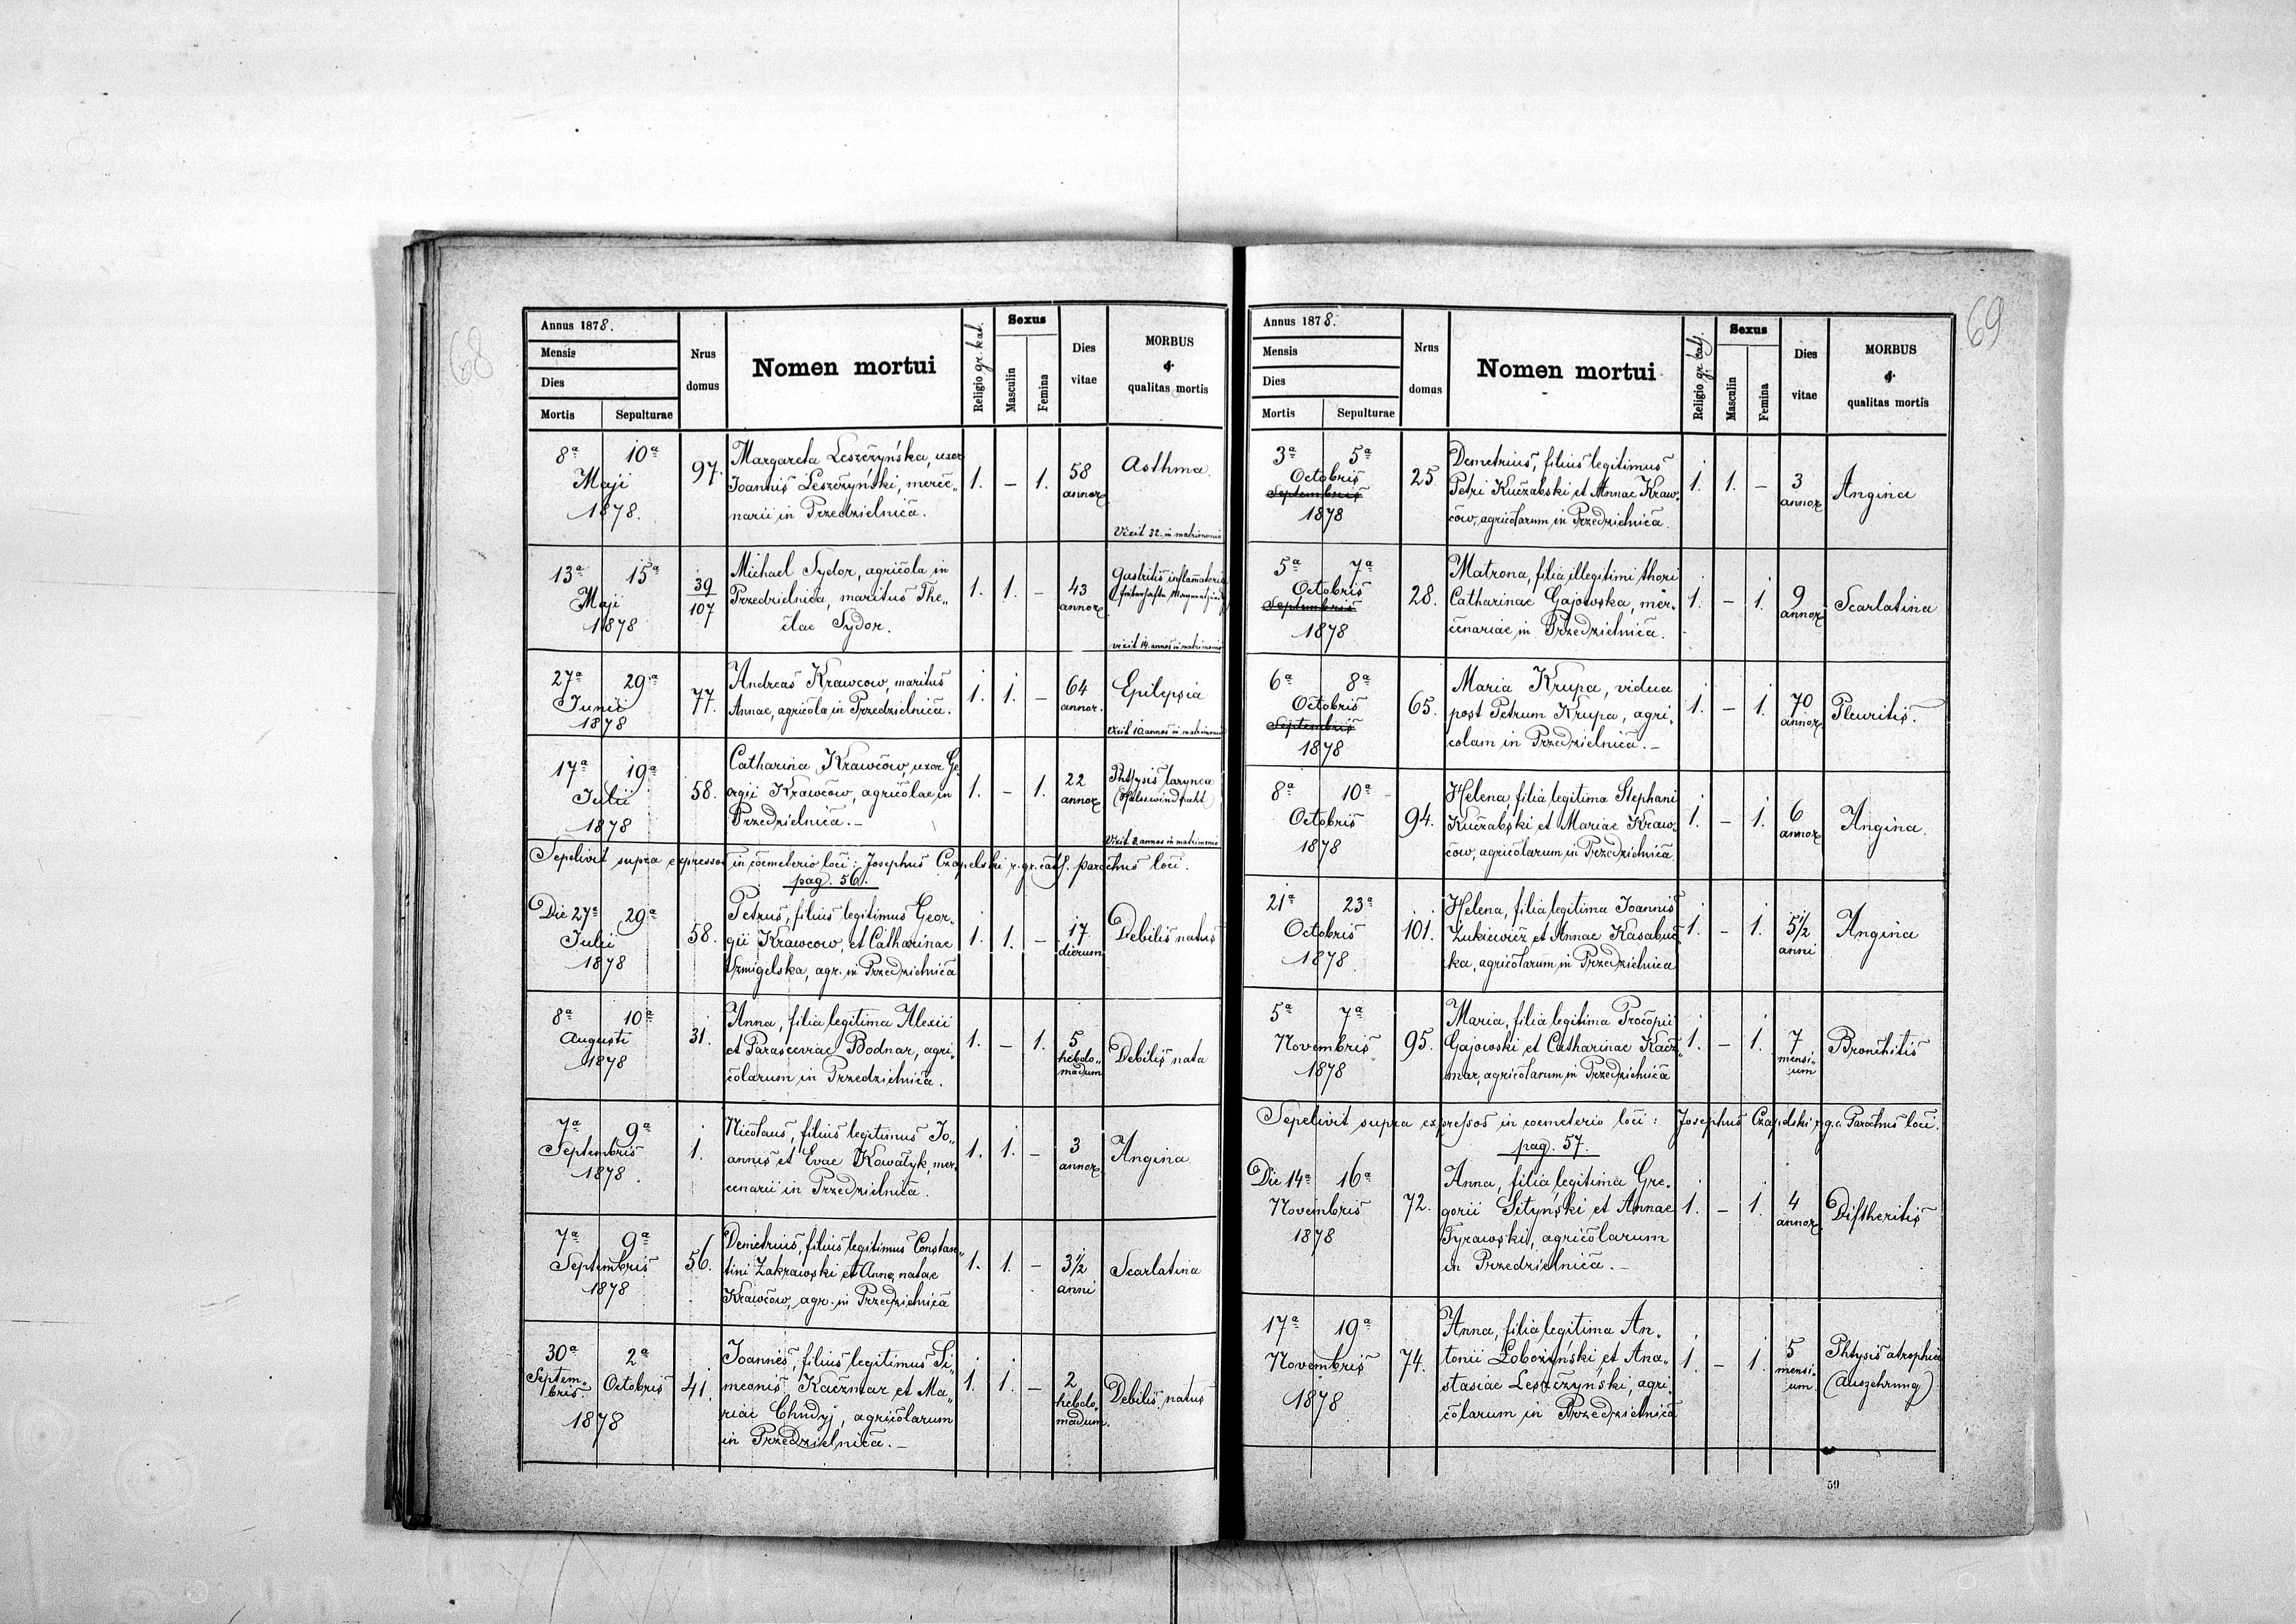 68
Annus 1878.
Mensis
Dies
Mortis
Sepulturae
Nrus domus
Nomen mortui
Religio gr. kat.
Sexus
Masculin
Femina
Dies vitae
MORBUS
&
qualitas mortis
8ª 10ª
Maji
1878.
97.
Margareta Leszczyńska, uxor
Joannis Leszczyński, merce„
narii in Przedzielnica.
1. – 1.
58
annor
Asthma.
Vixit 32. in matrimonio
13ª 15ª
Maji
1878
39
107
Michael Sydor, agricola in
Przedzielnica, maritus The„
clae Sydor.
1. 1. –
43
annor
Gastritis inflamatoria
vixit 14. annos in matrimonio
27ª 29ª
Junii
1878
77.
Andreas Krawcow, maritus
Annae, agricola in Przedzielnica.
1. 1. –
64
annor.
Epilepsia
Vixit 10. annos in matrimonio
17ª 19ª
Julii
1878
58.
Catharina Krawcow, uxor Ge„
orgii Krawcow, agricolae in
Przedzielnica.–
1. – 1.
22
annor
Phtysis larynea
(Halswindsucht)
Vixit 3. annos in matrimonio
Sepelivit supra expressos in coemeterio loci: Josephus Czapelski r. gr. cath. parochus loci.
pag. 56.
Die 27ª 29ª
Julii
1878
58.
Petrus, filius legitimus Geor„
gii Krawcow, et Catharinae
Szmigelska, agr. in Przedzielnica
1. 1. –
17.
dierum
Debilis natus
8ª 10ª
Augusti
1878
31.
Anna, filia legitima Alexii
et Parasceviae Bodnar, agri„
colarum in Przedzielnica.
1. – 1.
5
hebdo„
madum
Debilis nata
7ª 9ª
Septembris
1878.
1.
Nicolaus, filius legitimus Jo„
annis et Evae Kowalyk, mer„
cenarii in Przedzielnica.
1. 1. –
3
annor
Angina
7ª 9ª
Septembris
1878
56.
Demetrius, filius legitimus Constan„
tini Zakrawski et Anna, natae
Krawcow, agr. in Przedzielnica
1. 1. –
3½
anni
Scarlatina
30ª 2ª
Septem„
bris. Octobris
1878
41.
Joannes, filius legitimus Si„
meonis Kaczmar et Ma„
riae Chudyj, agricolarum
in Przedzielnica.–
1. 1. –
2
hebdo„
madum.
Debilis natus
69
Annus 1878.
Mensis
Dies
Mortis
Sepulturae
Nrus domus
Nomen mortui
Religio gr. cath.
Sexus
Masculin
Femina
Dies vitae
MORBUS
&
qualitas mortis
3ª 5ª
Octobris
Septembris
1878
25.
Demetrius, filius legitimus
Petri Kuczabski et Annae Kraw„
cow, agricolarum in Przedzielnica.
1. 1. –
3
annor
Angina
5ª 7ª
Octobris
Septembris
1878
28.
Matrona, filia illegitimi thori
Catharinae Gajowska, mer„
cenariae in Przedzielnica.
1. – 1.
9
annor
Scarlatina
6ª 8ª
Octobris
Septembris
1878
65.
Maria Krupa, vidua
post Petrum Krupa, agri„
colam in Przedzielnica.–
1. – 1.
70
annor
Pleuritis.
8ª 10ª
Octobris
1878
94.
Helena, filia legitima Stephani
Kuczabski et Mariae Kraw„
cow, agricolarum in Przedzielnica
1. – 1.
6
annor
Angina.
21ª 23ª
Octobris
1878.
101.
Helena, filia legitima Joannis
Żukiewicz et Annae Kasabuc„
ka, agricolarum in Przedzielnica
1. – 1.
5½
anni
Angina
5ª 7ª
Novembris
1878
95.
Maria, filia legitima Procopii
Gajowski et Catharinae Kacz„
mar, agricolarum in Przedzielnica
1. – 1.
7
mensi„
um
Bronchitis
Sepelivit supra expressos in coemeterio loci: Josephus Czapelski r. g. c. Parochus loci.
pag. 57.
Die 14ª 16ª
Novembris
1878
72.
Anna, filia legitima Gre„
gorii Sityński et Annae
Tyrawski, agricolarum
in Przedzielnica.–
1. – 1.
4
annor
Diftheritis
17ª 19ª
Novembris
1878
74.
Anna, filia legitima An„
tonii Łobozyński et Ana„
stasiae Leszczynski, agri„
colarum in Przedzielnica
1. – 1.
5
mensi„
um
Phtysis atrophica
(Auszehrung)
59